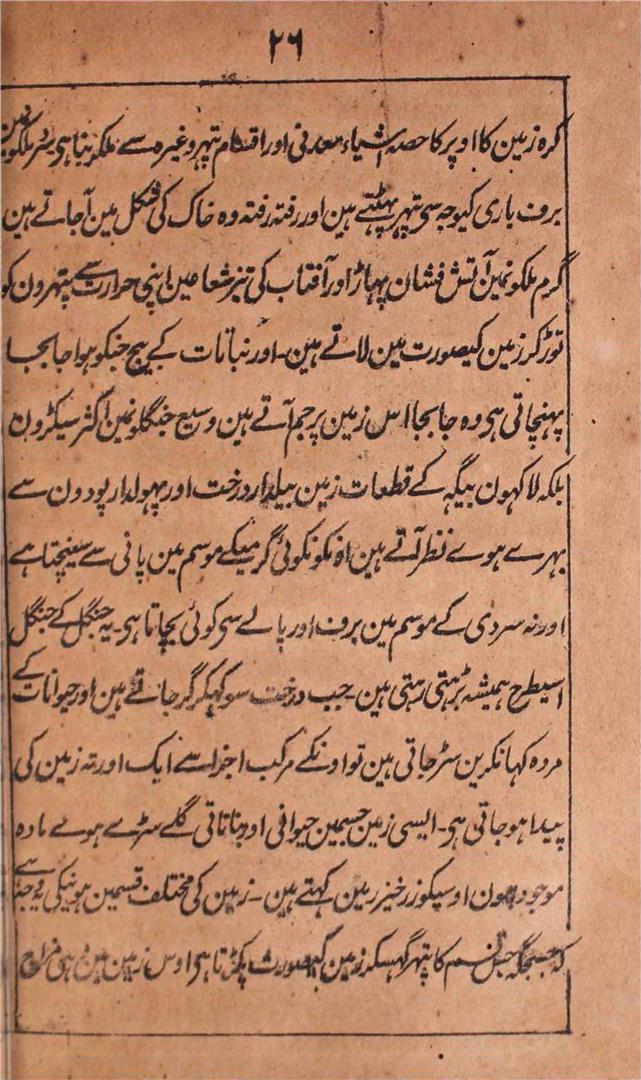 ۲۶
کرہ زمین کا اوپر کا حصہ اشیاء معدنی اور اقسام پتہر وغیرہ سے ملکر بنا ہی سرد ملکونمین
برف باری کیوجہ سی پتہر پہٹتے ہین اور رفتہ رفتہ وہ خاک کی شکل مین آجاتے ہین
گرم ملکونمین آتش فشان پہاڑ اور آفتاب کی تیز شعاعین اپنی حوارت سے پتہرون کو
توڑ کر زمین کیصورت مین لاتے ہین۔ اور نباتات کے بیج جنکو ہوا جابجا
پہنچاتی ہی وہ جابجا اس زمین پر جم آتے ہین وسیع جنگلونمین اکثر سیکڑون
بلکہ لاکہون بیگہ کے قطعات زمین بیلدار درخت اور پہولدار پودون سے
بہرے ہوے نظر آتے ہین انکو نکوئی گرمیکے موسم مین پانی سے سینچتا ہے
اور نہ سردی کے موسم مین برف اور پالے سی کوئی بچاتا ہی۔ یہ جنگل کے جنگل
اسیطرح ہمیشہ بڑہتی رہتی ہین۔ جب درخت سوکہکر گر جاتے ہین اور حیوانات کے
مردہ کہانکرین سڑجاتی ہین تو اونکے مرکب اجزا سے ایک اور تہ زمین کی
پیدا ہوجاتی ہی۔ ایسی زمین جسمین حیوانی اور نباتاتی گلے سڑے ہوے مادہ
موجود ہون اوسیکو زرخیز زمین کہتے ہین۔ زمین کی مختلف قسمین ہونیکی یہ وجہ ہے
کہ جسجگہ جس قسم کا پتہر گہسکر زمین کیصورت پکڑتا ہی اوس زمین مین وہی مزاج